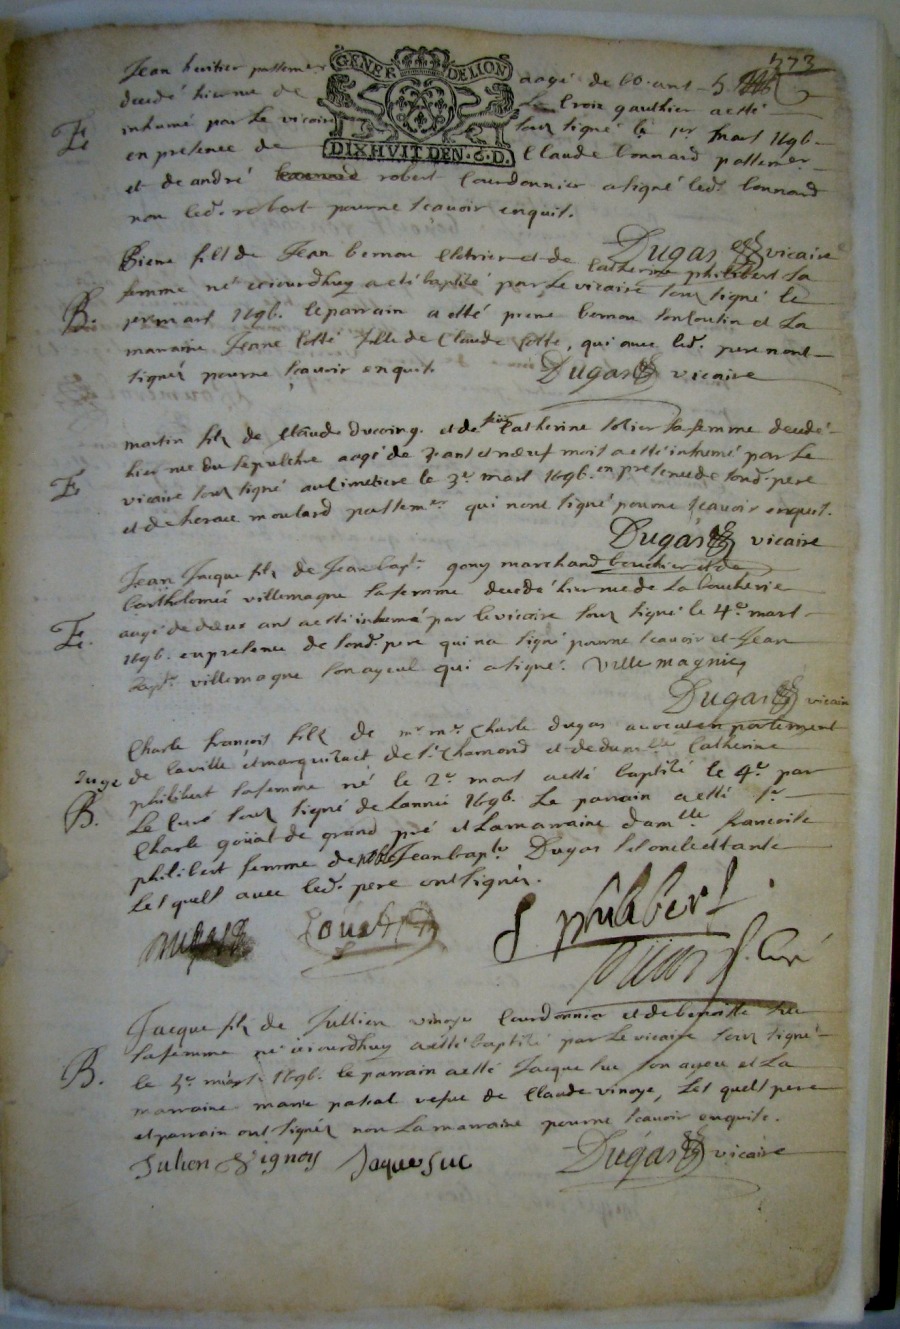 573
GENER DE LION
DIXHUIT DEN. 6. D.
Jean heritier passemer aagé de 60. ans
decedé hier rue de La Croix gauthier a esté
E. inhumé par Le vicaire sous signé le 1er mars 1696.
en presence de Claude bonnard passemer
et de andré robert Courdonnier a signé led. bonnard
non led. robert pour ne scavoir enquis.
Dugas vicaire
Pierre fils de Jean bernou Clotrier et de Catherine philibert sa
femme né ceiourdhuy a esté baptisé par Le vicaire sous signé le
B. per mars 1696. le parrain a esté pierre bernou son cousin et La
marraine Jeane Cotté fille de Claude Cotte, qui avec led. pere nont
signés pour ne scavoir enquis. Dugas vicaire
martin fils de Claude ducoing. et de Catherine solier sa femme decedé
hier rue du sepulchre aagé de 7 ans et neuf mois a esté inhumé par Le
E. vicaire sous signé au Cimetiere le 3e mars 1696. en presence de sond. pere
et de horace moulard passemer qui nont signé pour ne scavoir enquis.
Dugas vicaire
Jean Jacque fils de Jean bapt. gony marchand boucher et de
bartholomée villemagne sa femme decedé hier rue de La boucherie
E. aagé de deux ans a esté inhumé par le vicaire sous signé le 4e mars
1696. en presence de sond. pere qui na signé pour ne scavoir et Jean
bapt. villemagne son ayeul qui a signé. Villemagnies
Dugas vicaire
Charle françois fils de mr mr Charle dugas avocat en parlement
Juge de la ville et marquizact de St Chamond et de damlle Catherine
B. philibert sa femme né le 2e mars a esté baptisé le 4e par
Le Curé sous signé de Lannée 1696. Le parrain a esté Sr
Charle goüat de grand pré et La marraine damlle francoise
philibert femme de noble Jean bapte Dugas ses oncle et tante
Lesquels avec led. pere ont signés.
Dugas f philibert
Curé
Jacque fils de Jullien vinoys Courdonnier et de benoitte sue
sa femme né ceiourdhuy a esté baptisé par Le vicaire sous signé
B. le 5e mars 1696. le parrain a esté Jacque suc son ayeu et La
marraine marie pascal vefve de Claude vinoys, Lesquels pere
et parrain ont signés non La marraine pour ne scavoir enquise.
Julien Vignoy Jaque suc Dugas vicaire